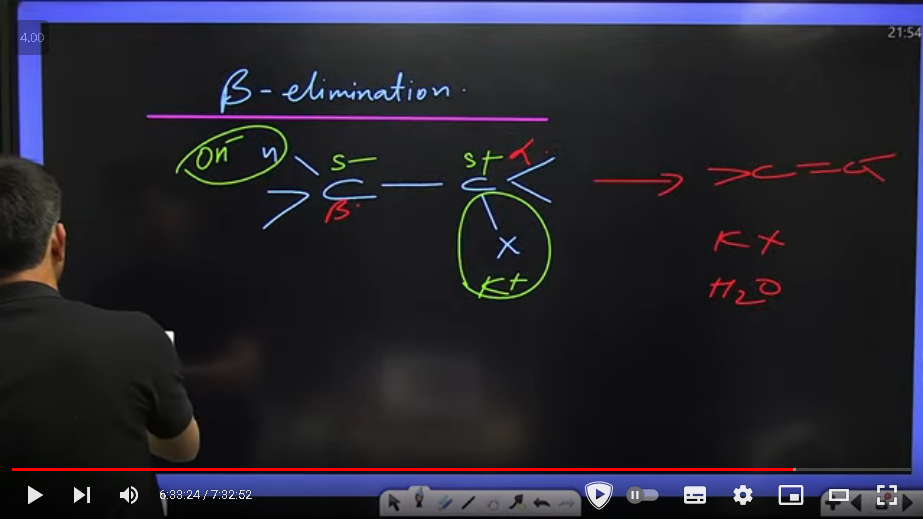 4.00
21:54
β-elimination.
OH⁻ H δ- δ+ α.
C — C → >C=C<
β.
X K X
K+ H₂O
6:33:24 / 7:32:52